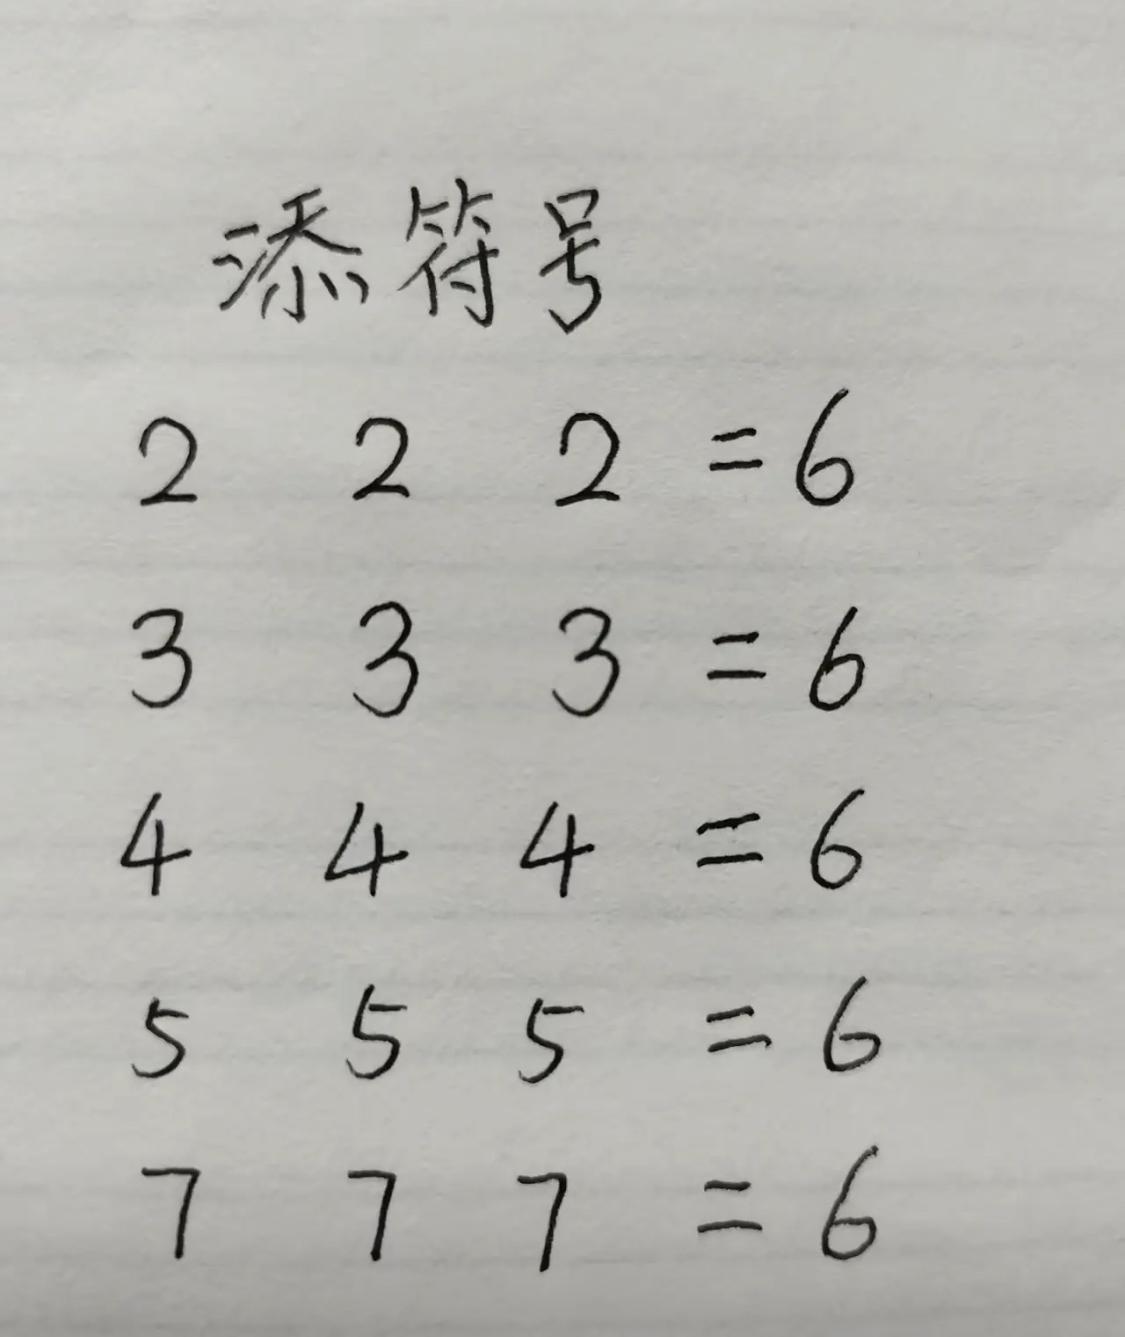 添符号
2 2 2 = 6
3 3 3 = 6
4 4 4 = 6
5 5 5 = 6
7 7 7 = 6